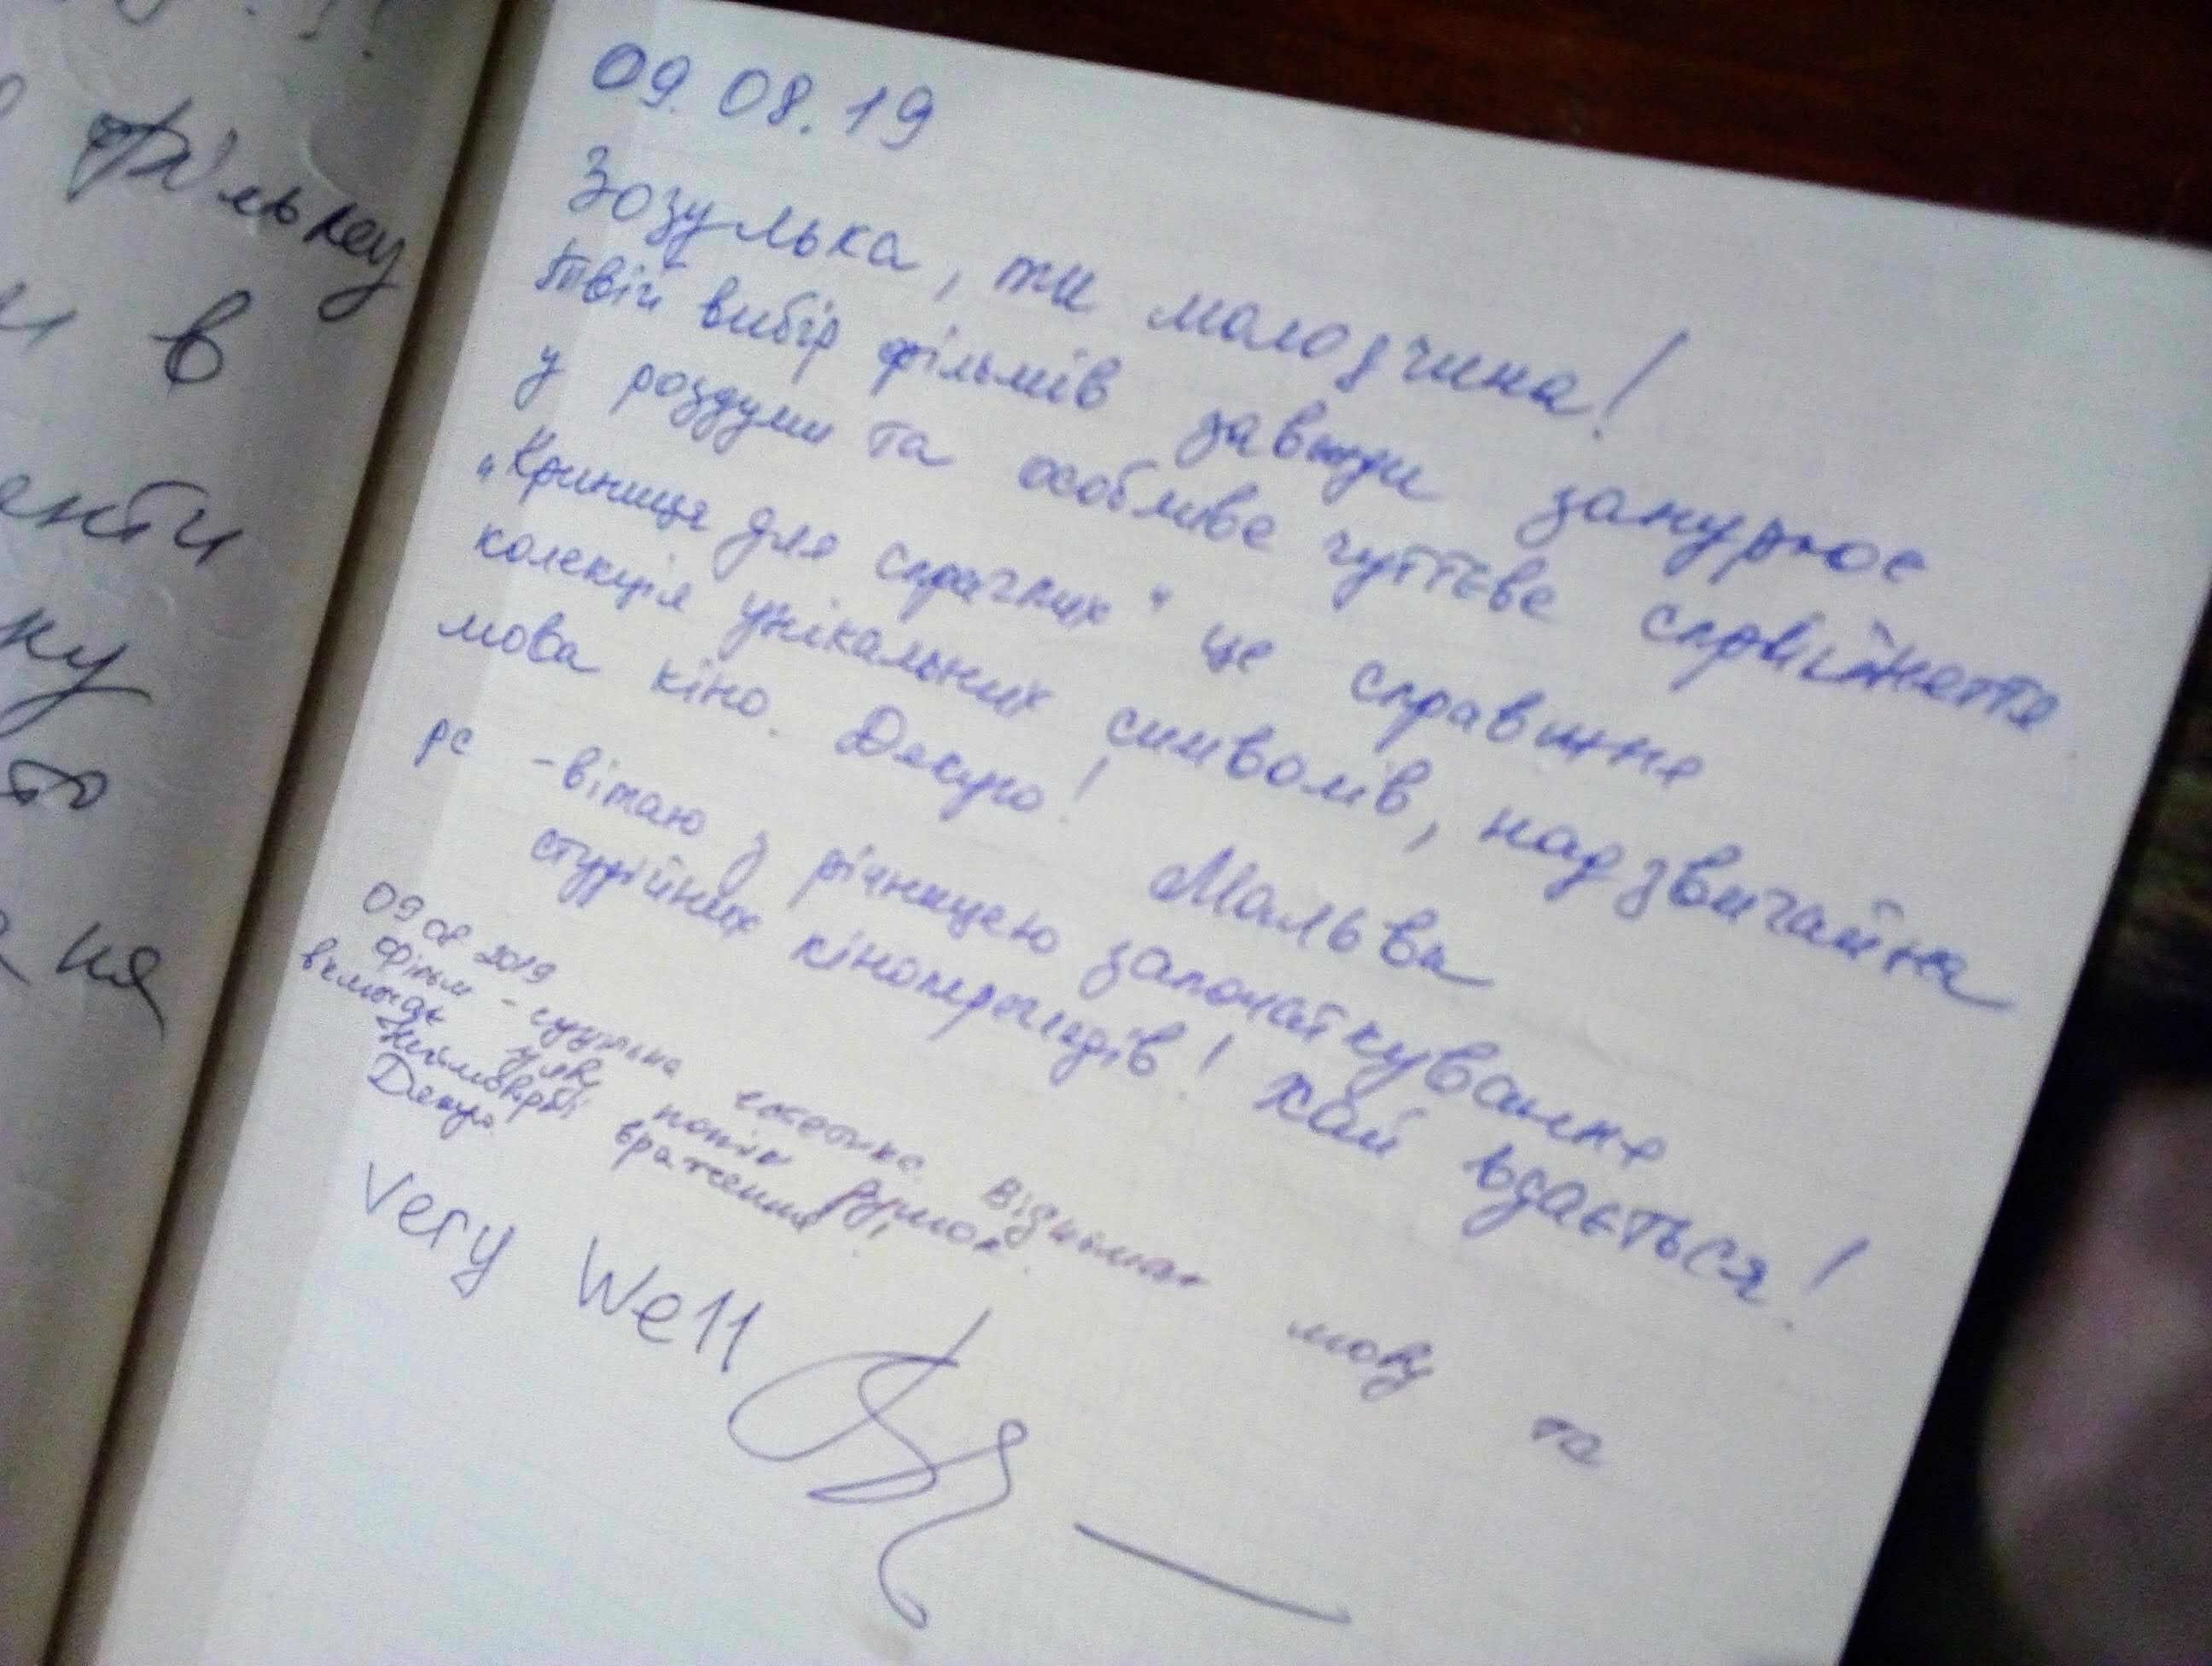 фільму
в
енти
ку
то
ня
09.08.19
Зозулька, ти молодчина!
твій вибір фільмів завжди занурює
у роздуми та особливе чуттєве сприйняття
„Криниця для спраглих" це справжня
колекція унікальних символів, надзвичайна
мова кіно. Дякую! Мальва
рс - вітаю з річницею започаткування
студійних кінопереглядів! Хай вдається!
09 08 2019
Фільм - суцільна естетика. Віднімає мову та
вмикає уяву, потік думок.
Неймовірні враження!
Дякую.
Very Well